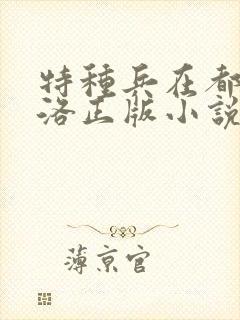 特種兵在都
洛正版小說
薄京官